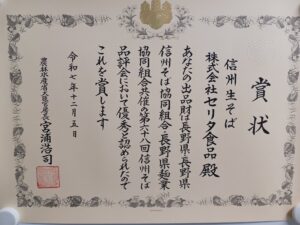 賞状
信州生そば
株式会社セリタ食品殿
あなたの出品財は長野県・長野県
信州そば協同組合・長野県麺業
協同組合共催の第六十八回信州そば
品評会において優秀と認められたので
これを賞します
令和七年十二月五日
農林水産省大臣官房長 宮浦浩司